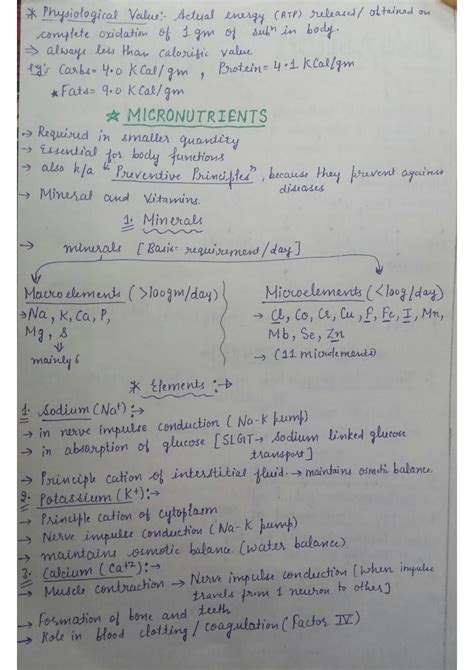 * Physiological Value:- Actual energy (ATP) released/obtained on
complete oxidation of 1 gm of subⁿ in body.
⇒ always less than calorific value
eg:- Carbs= 4.0 KCal/gm , Protein= 4.1 KCal/gm
* Fats= 9.0 KCal/gm
★ MICRONUTRIENTS
→ Required in smaller quantity
→ Essential for body functions
→ also k/a "Preventive Principles", because they prevent against
diseases
→ Mineral and Vitamins.
1. Minerals
→ minerals [Basis= requirement/day]
Macroelements (>100gm/day)
→ Na, K, Ca, P,
Mg, S
mainly 6
Microelements (<100g/day)
→ Cl, Co, Cr, Cu, F, Fe, I, Mn,
Mb, Se, Zn
→ (11 microlements)
* Elements :→
1. Sodium (Na⁺) :→
→ in nerve impulse conduction (Na-K pump)
→ in absorption of glucose [SLGT→ Sodium linked glucose
transport]
→ Principle cation of interstitial fluid. → maintains osmotic balance.
2. Potassium (K⁺) :→
→ Principle cation of cytoplasm
→ Nerve impulse conduction (Na-K pump)
→ maintains osmotic balance (water balance)
3. Calcium (Ca⁺²) :→
→ Muscle contraction → Nerve impulse conduction [When impulse
travels from 1 neuron to other]
→ Formation of bone and teeth
→ Role in blood clotting / coagulation (Factor IV)